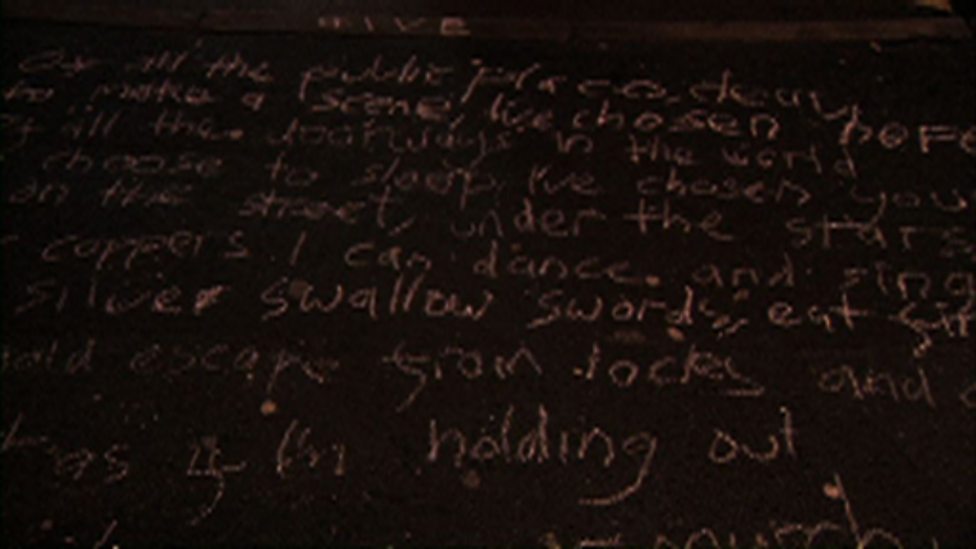 Of all the public places, dear
to make a scene, I've chosen here
Of all the doorways in the world
choose to sleep, I've chosen you
on the street, under the stars
coppers I can dance and sing
silver swallow swords, eat
gold escape from locks and
as if I'm holding out